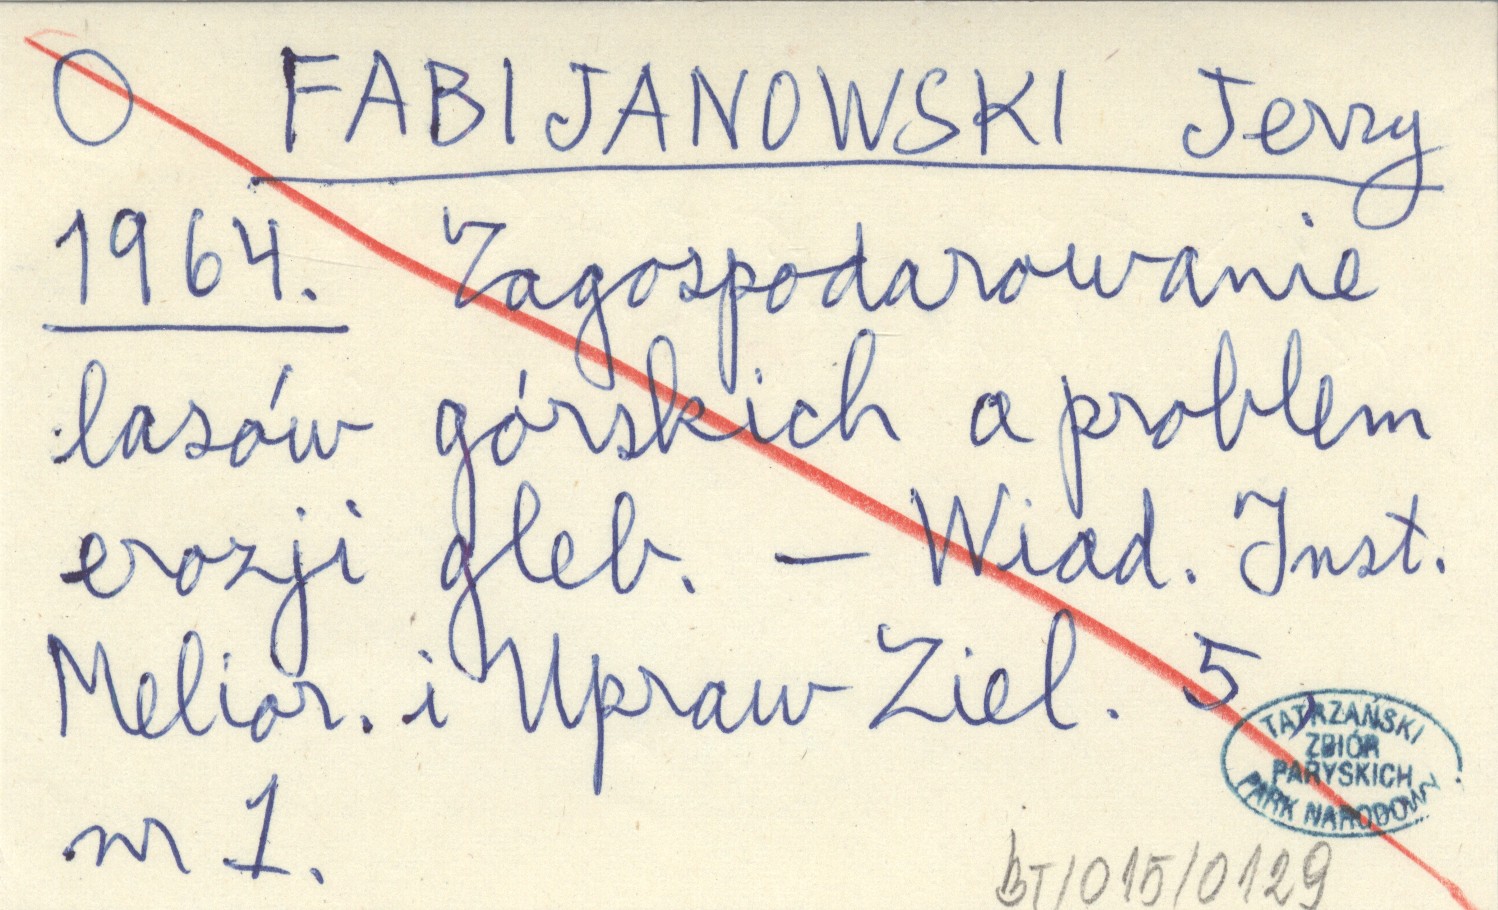 O FABIJANOWSKI Jerzy
1964. Zagospodarowanie
lasów górskich a problem
erozji gleb. – Wiad. Inst.
Melior. i Upraw Ziel. 5,
nr 1.
TATRZAŃSKI
ZBIÓR
PARYSKICH
PARK NARODOWY
BT/015/0129